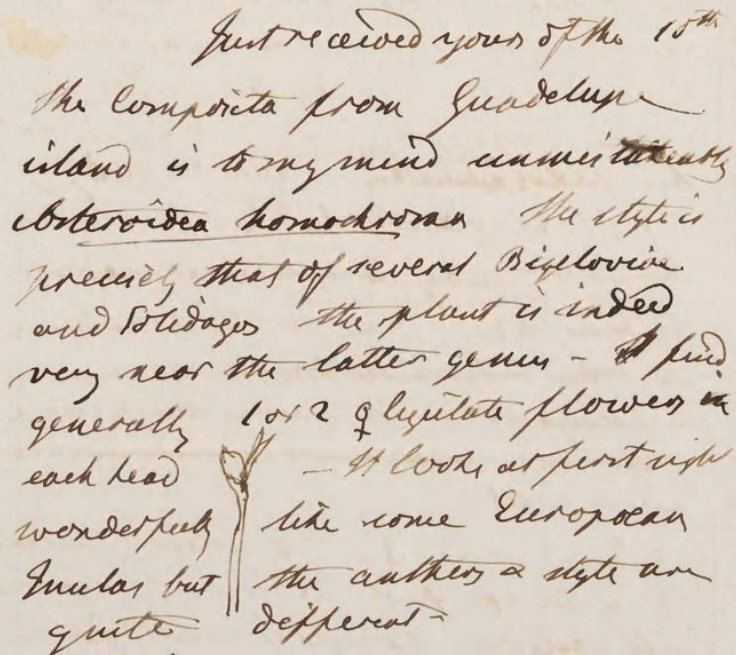 Just received yours of the 10th
the Composita from Guadelupe
island is to my mind unmistakeably
Asteroidea homochroma The style is
precisely that of several Bigelovia
and Solidagos the plant is indeed
very near the latter genus - I find
generally 1 or 2 ♀ ligulate flowers in
each head - It looks at first sight
wonderfully like some European
Inulas but the anthers & style are
quite different -